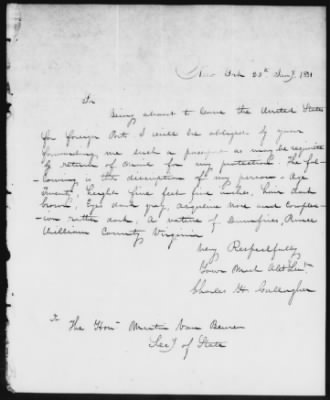 New York 25th Jany. 1831
Sir
Being about to leave the United State
for foreign Ports I will be obliged by your
forwarding me such a passport as may be requisite
by return of Mail for my protection. The fol-
lowing is the discription of my person. Age
Twenty; Height five feet five inches, hair dark
brown; Eyes dark gray, aquiline nose and complex-
-ion rather dark, a native of Dumfries, Prince
William County, Virginia
Very Respectfully
Your Most Obt Sert
Charles H. Gallagher
To
The Honl Martin Van Beuren
Secy of State